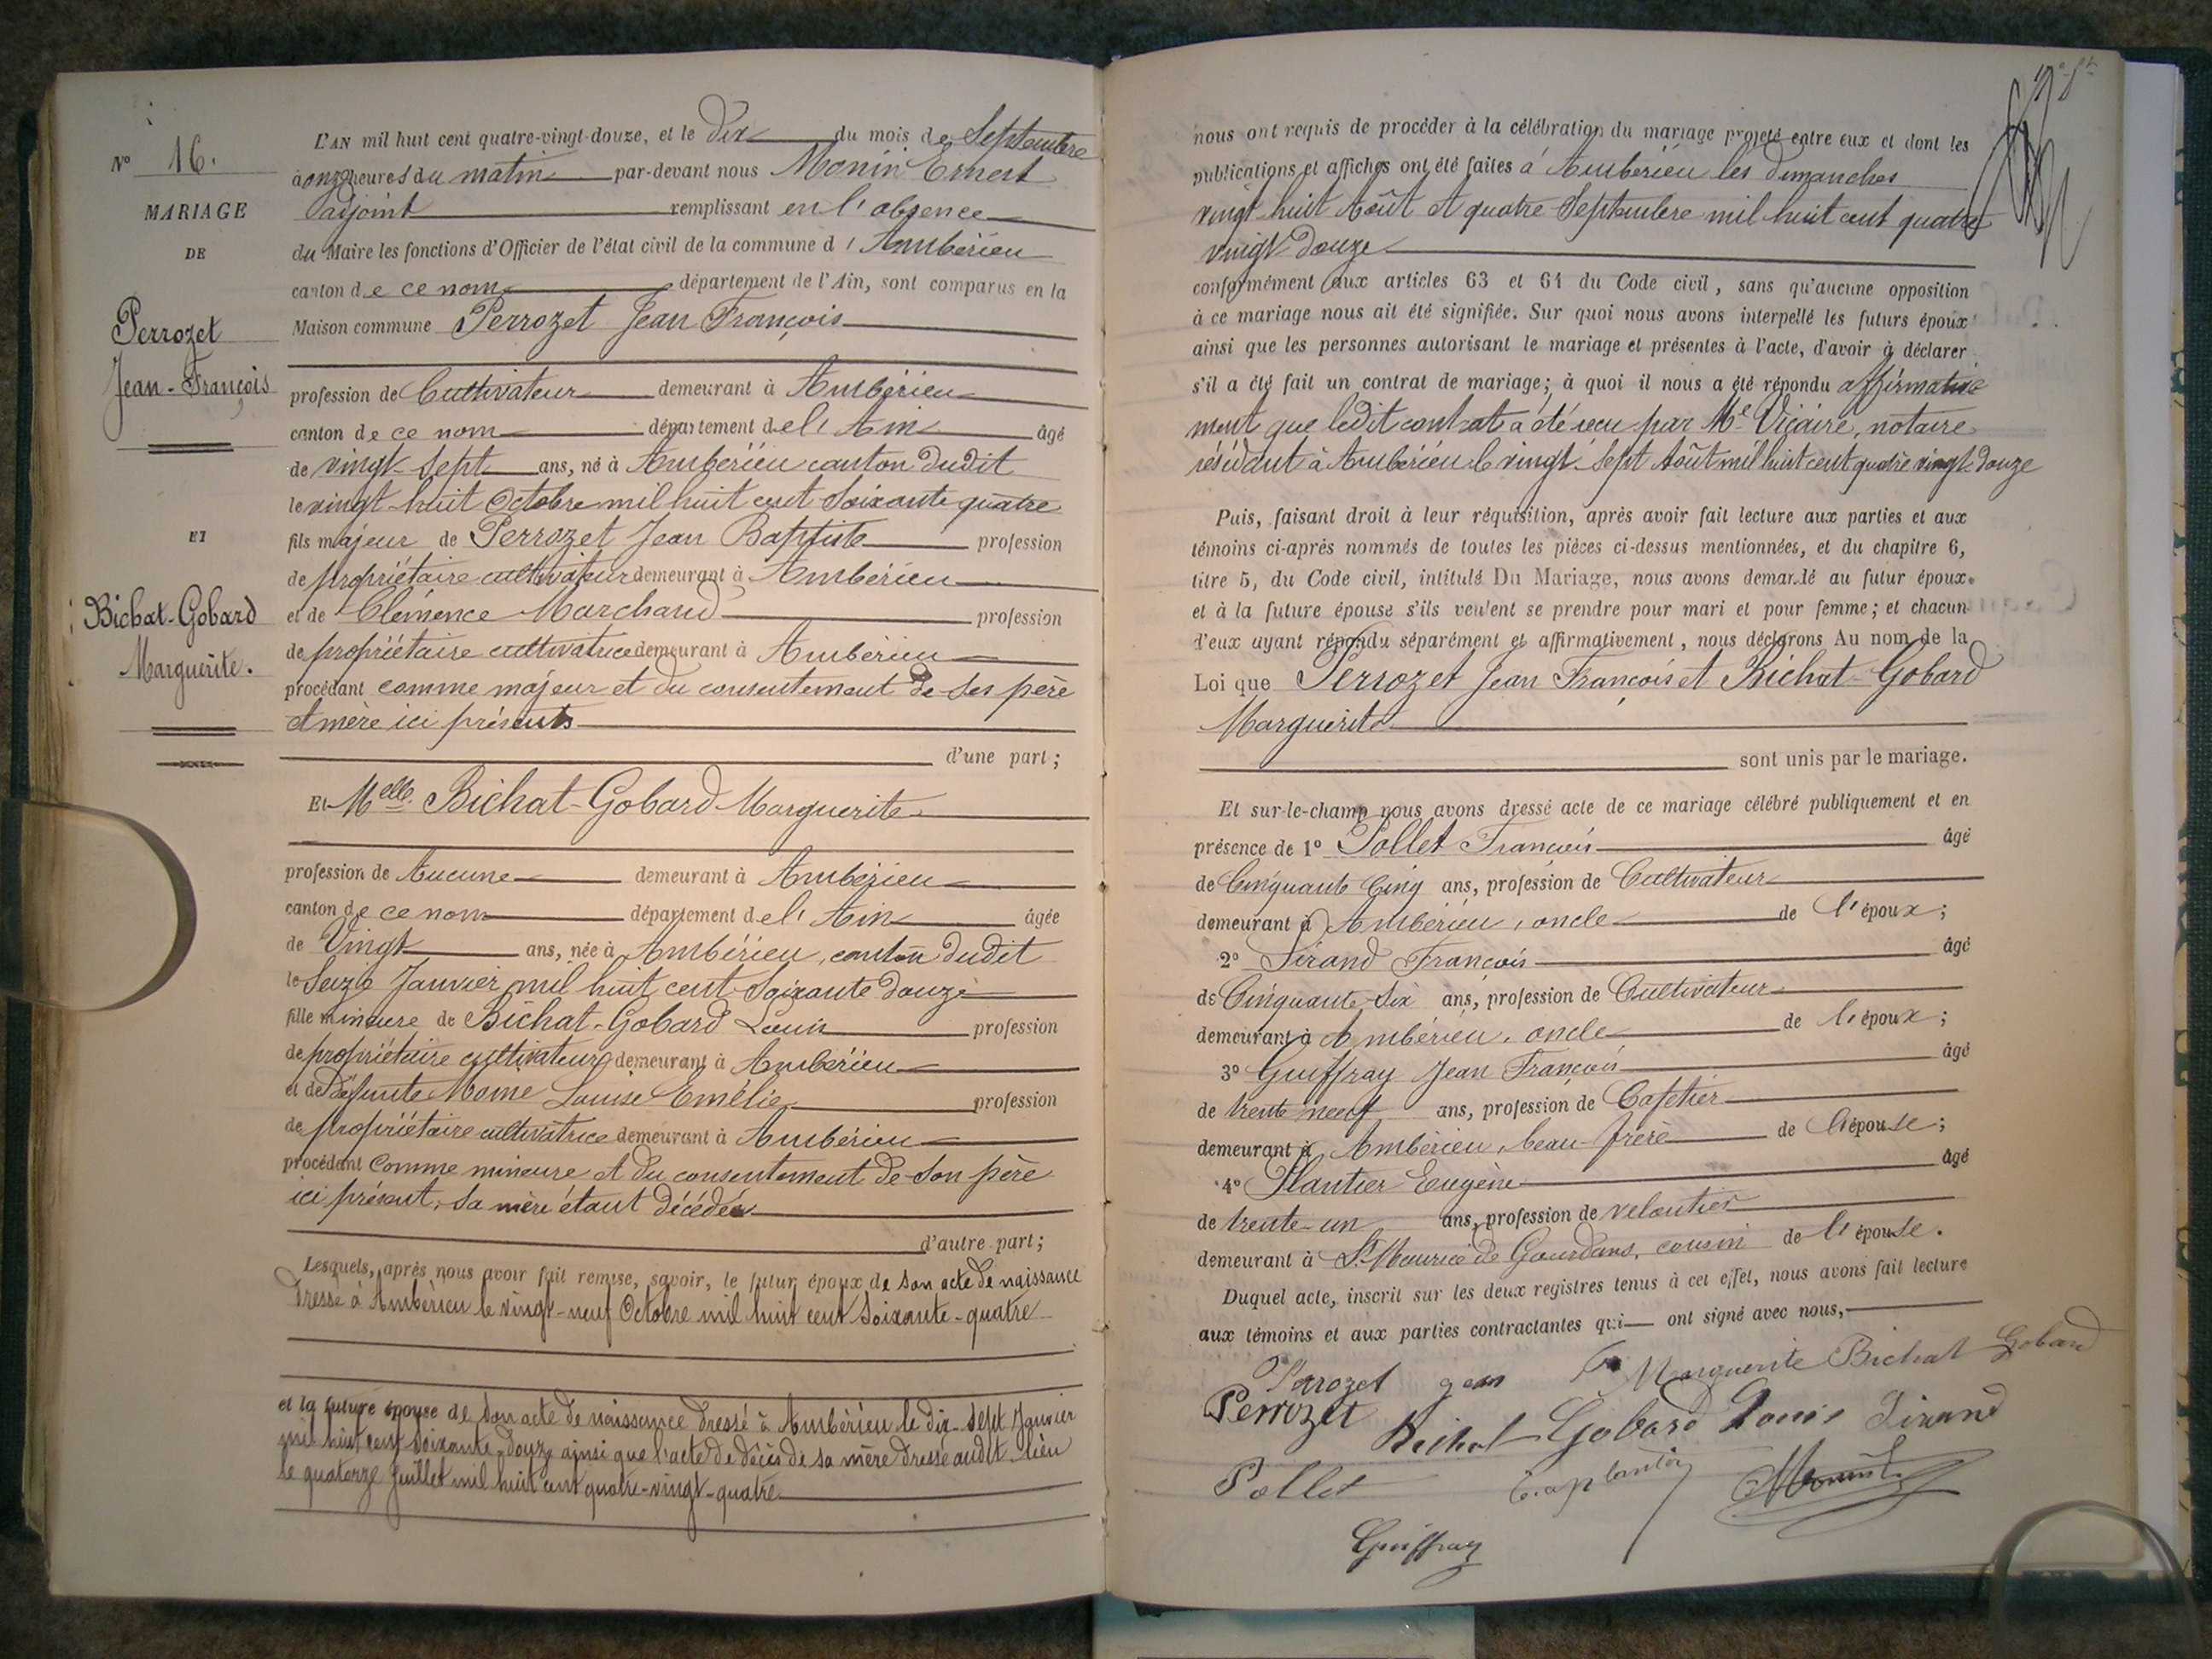 N° 16.
MARIAGE
DE
Perrozet
Jean-François
ET
Bichat-Gobard
Marguerite.
L'AN mil huit cent quatre-vingt-douze, et le Dix du mois de Septembre
à onze heures du matin par-devant nous Monin Ernest
adjoint remplissant en l'absence
du Maire les fonctions d'Officier de l'état civil de la commune d'Ambérieu
canton de ce nom département de l'Ain, sont comparus en la
Maison commune Perrozet Jean François
profession de Cultivateur demeurant à Ambérieu
canton de ce nom département de l'Ain âgé
de vingt-sept ans, né à Ambérieu canton dudit
le vingt huit Octobre mil huit cent soixante quatre
fils majeur de Perrozet Jean Baptiste profession
de propriétaire cultivateur demeurant à Ambérieu
et de Clémence Marchand profession
de propriétaire cultivatrice demeurant à Ambérieu
procédant comme majeur et du consentement de ses père
et mère ici présents
d'une part ;
Et Melle Bichat-Gobard Marguerite
profession de Aucune demeurant à Ambérieu
canton de ce nom département de l'Ain âgée
de Vingt ans, née à Ambérieu, canton dudit
le Seize Janvier mil huit cent soixante douze
fille mineure de Bichat-Gobard Louis profession
de propriétaire cultivateur demeurant à Ambérieu
et de défunte Mome Louise Emélie profession
de propriétaire cultivatrice demeurant à Ambérieu
procédant comme mineure et du consentement de son père
ici présent, sa mère étant décédée
d'autre part ;
Lesquels, après nous avoir fait remise, savoir, le futur époux de son acte de naissance
dressé à Ambérieu le vingt-neuf Octobre mil huit cent soixante-quatre
et la future épouse de son acte de naissance dressé à Ambérieu le dix-sept Janvier
mil huit cent soixante-douze ainsi que l'acte de décès de sa mère dressé audit lieu
le quatorze Juillet mil huit cent quatre-vingt-quatre
nous ont requis de procéder à la célébration du mariage projeté entre eux et dont les
publications et affiches ont été faites à Ambérieu les dimanches
vingt-huit Août et quatre Septembre mil huit cent quatre
vingt douze
conformément aux articles 63 et 64 du Code civil, sans qu'aucune opposition
à ce mariage nous ait été signifiée. Sur quoi nous avons interpellé les futurs époux
ainsi que les personnes autorisant le mariage et présentes à l'acte, d'avoir à déclarer
s'il a été fait un contrat de mariage ; à quoi il nous a été répondu affirmative
ment que ledit contrat a été reçu par Me Vicaire, notaire
résidant à Ambérieu le vingt-sept Août mil huit cent quatre vingt douze
Puis, faisant droit à leur réquisition, après avoir fait lecture aux parties et aux
témoins ci-après nommés de toutes les pièces ci-dessus mentionnées, et du chapitre 6,
titre 5, du Code civil, intitulé Du Mariage, nous avons demandé au futur époux
et à la future épouse s'ils veulent se prendre pour mari et pour femme ; et chacun
d'eux ayant répondu séparément et affirmativement, nous déclarons Au nom de la
Loi que Perrozet Jean François et Bichat-Gobard
Marguerite
sont unis par le mariage.
Et sur-le-champ nous avons dressé acte de ce mariage célébré publiquement et en
présence de 1° Pollet François âgé
de Cinquante cinq ans, profession de Cultivateur
demeurant à Ambérieu, oncle de l'époux ;
2° Sirand François âgé
de Cinquante-six ans, profession de Cultivateur
demeurant à Ambérieu, oncle de l'époux ;
3° Guiffray Jean François âgé
de trente neuf ans, profession de Cafetier
demeurant à Ambérieu, beau-frère de l'épouse ;
4° Plantier Eugène âgé
de trente-un ans, profession de veloutier
demeurant à St Maurice de Gourdans, cousin de l'épouse.
Duquel acte, inscrit sur les deux registres tenus à cet effet, nous avons fait lecture
aux témoins et aux parties contractantes qui ont signé avec nous,
Perrozet jean Marguerite Bichat Gobard
Perrozet Bichat Gobard Louis Sirand
Pollet E. plantier Monin
Guiffray